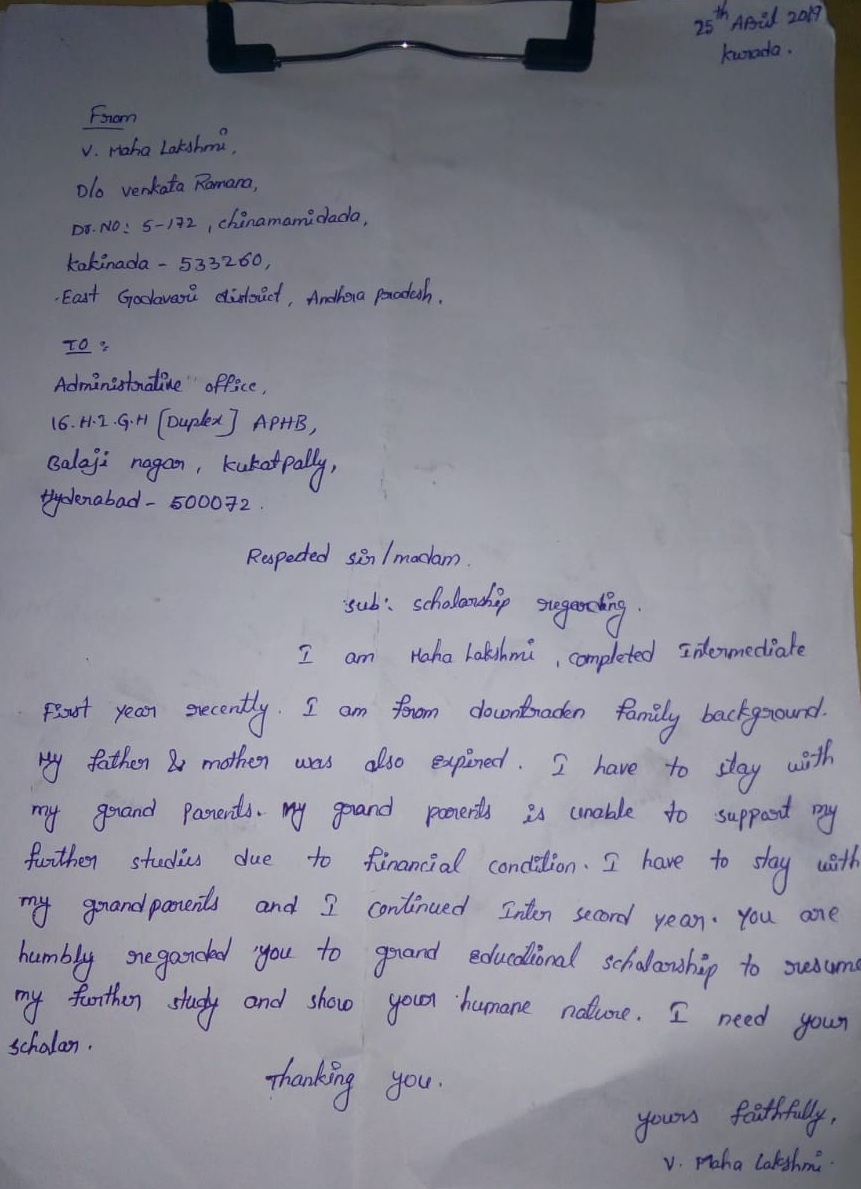 25th April 2019
kurada.
From
V. Maha Lakshmi,
D/o venkata Ramana,
Dr.NO: 5-172, chinamamidada,
kakinada - 533260,
East Godavari district, Andhra pradesh.
TO :
Administrative office,
16.H.I.G.H [Duplex] APHB,
Balaji nagar, kukatpally,
Hyderabad - 500072.
Respected sir/madam.
sub: scholarship regarding.
I am Maha Lakshmi, completed Intermediate
First year recently. I am from downtraden family background.
My father & mother was also expired. I have to stay with
my grand parents. My grand parents is unable to support my
further studies due to financial condition. I have to stay with
my grandparents and I continued Inter second year. You are
humbly regarded you to grand educational scholarship to resume
my further study and show your humane nature. I need your
scholar.
Thanking you.
yours faithfully,
V. Maha Lakshmi.